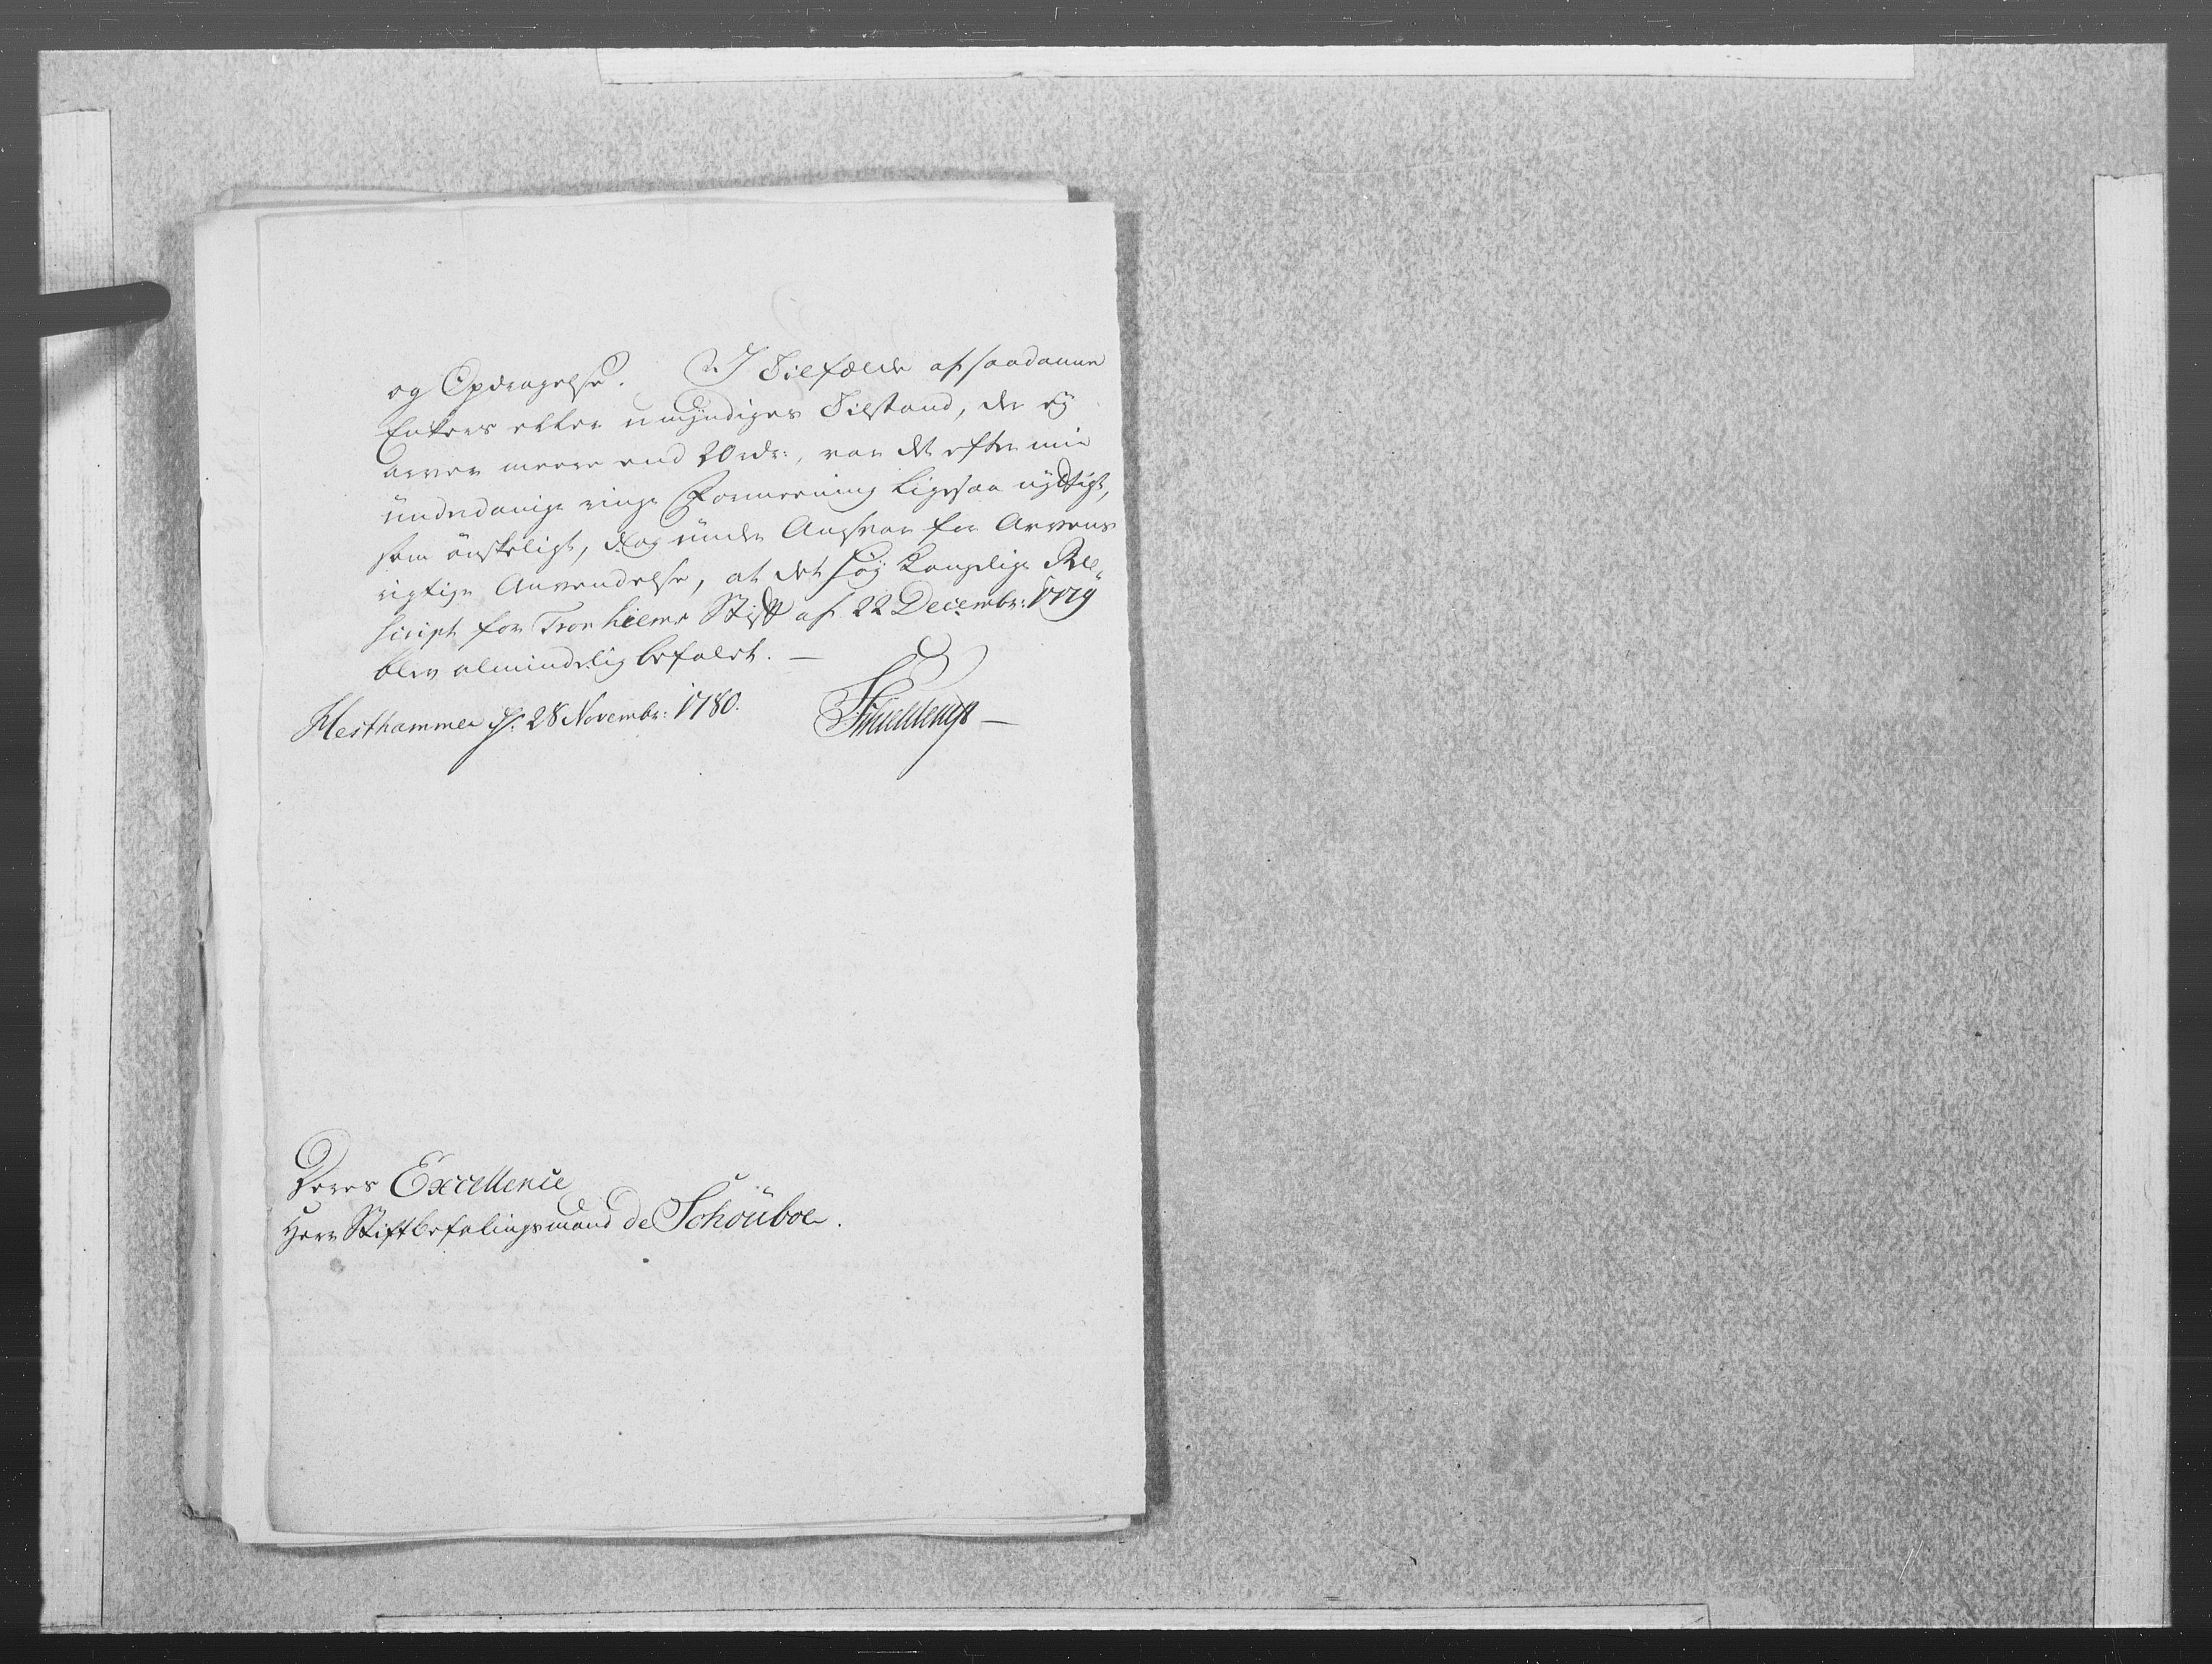 og Opdragelse. I Tilfælde af saadanne
Enkers eller umyndiges Tilstand, der ey
arver meere end 20 rdr:, var det efter min
ünderdanige ringe Formeening ligesaa nyttigt,
som ønskeligt, dog ünder Ansvar for Arvens
rigtige Anvendelse, at det høy Kongelige Re-
script for Tronhiems Stift af 22 Decembr: 1779
blev almindelig befalet. —
Hesthammer d. 28 Novembr: 1780.
Deres Excellence
Herr Stiftbefalingsmand de Schouboe.